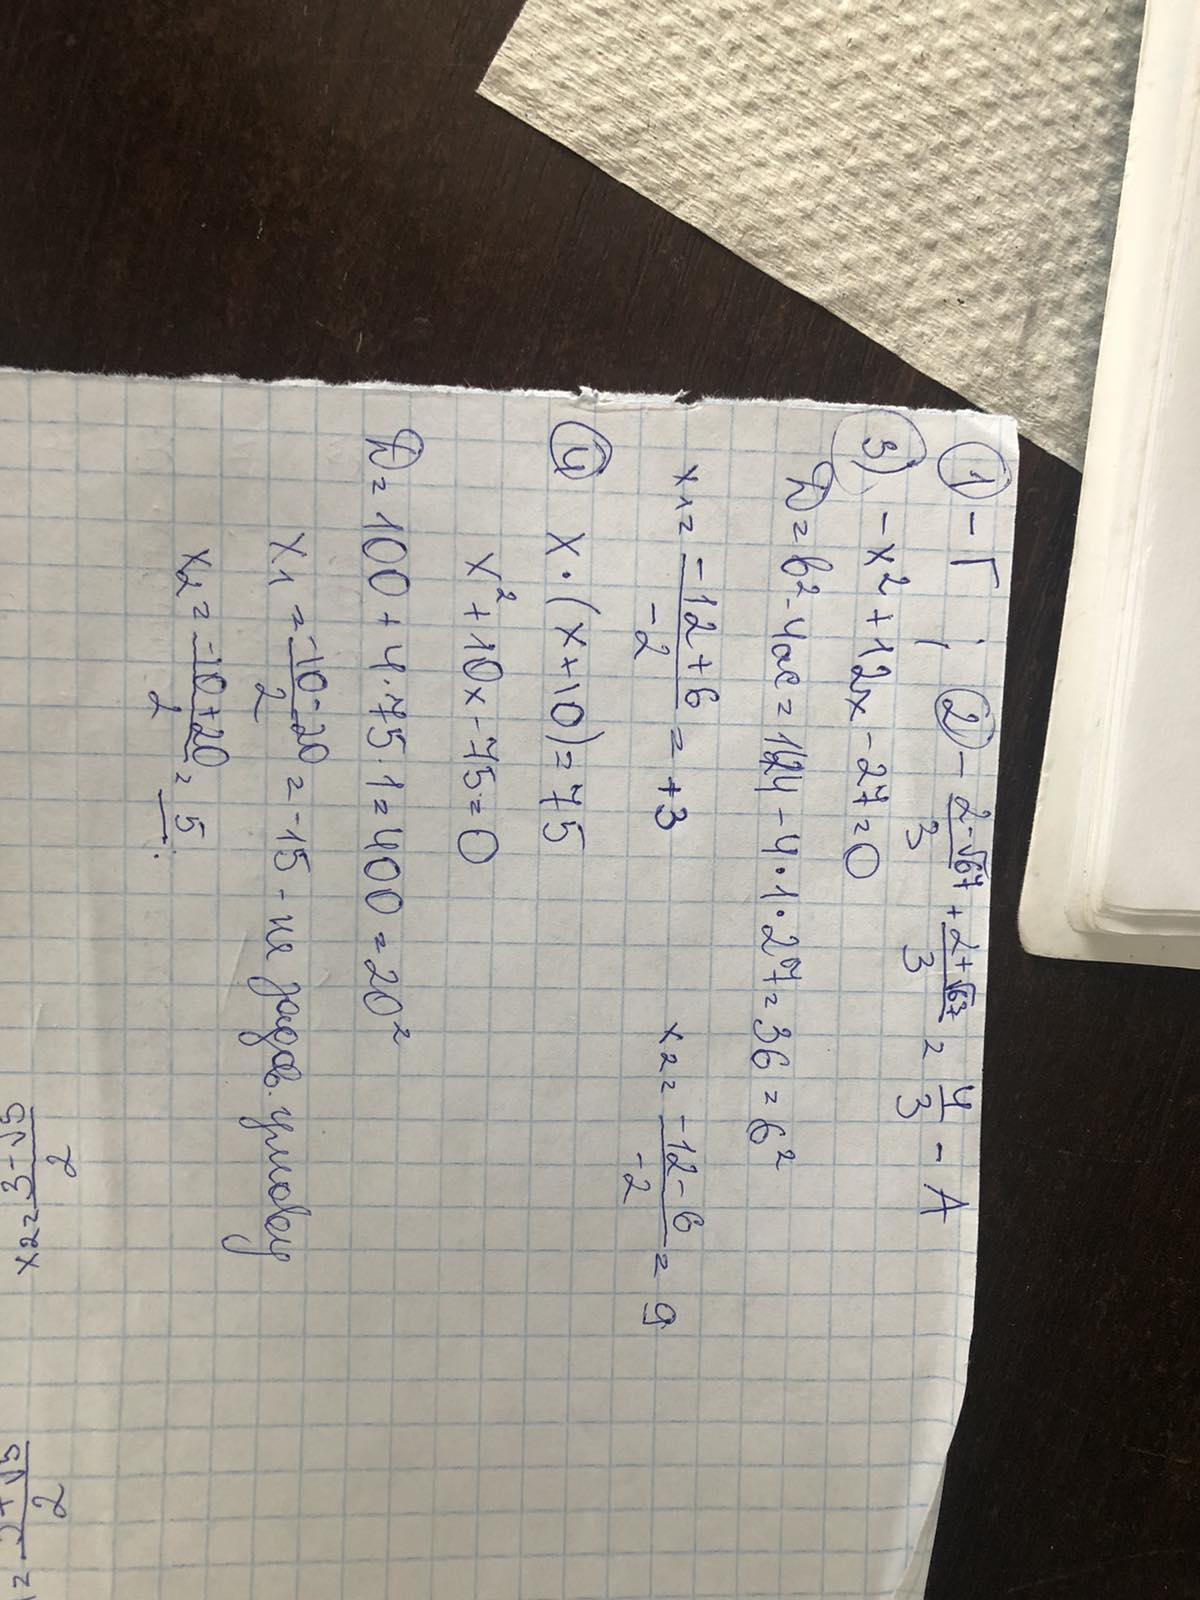 1 - Г ; 2 - (2-√67)/3 + (2+√67)/3 = 4/3 - А
3) -x² + 12x - 27 = 0
D = b² - 4ac = 144 - 4·1·27 = 36 = 6²
x1 = (-12+6)/-2 = +3 x2 = (-12-6)/-2 = 9
4 x·(x+10) = 75
x² + 10x - 75 = 0
D = 100 + 4·75·1 = 400 = 20²
x1 = (-10-20)/2 = -15 - не задов. умову
x2 = (-10+20)/2 = 5.
x2 = (3-√5)/2 = +√5/2